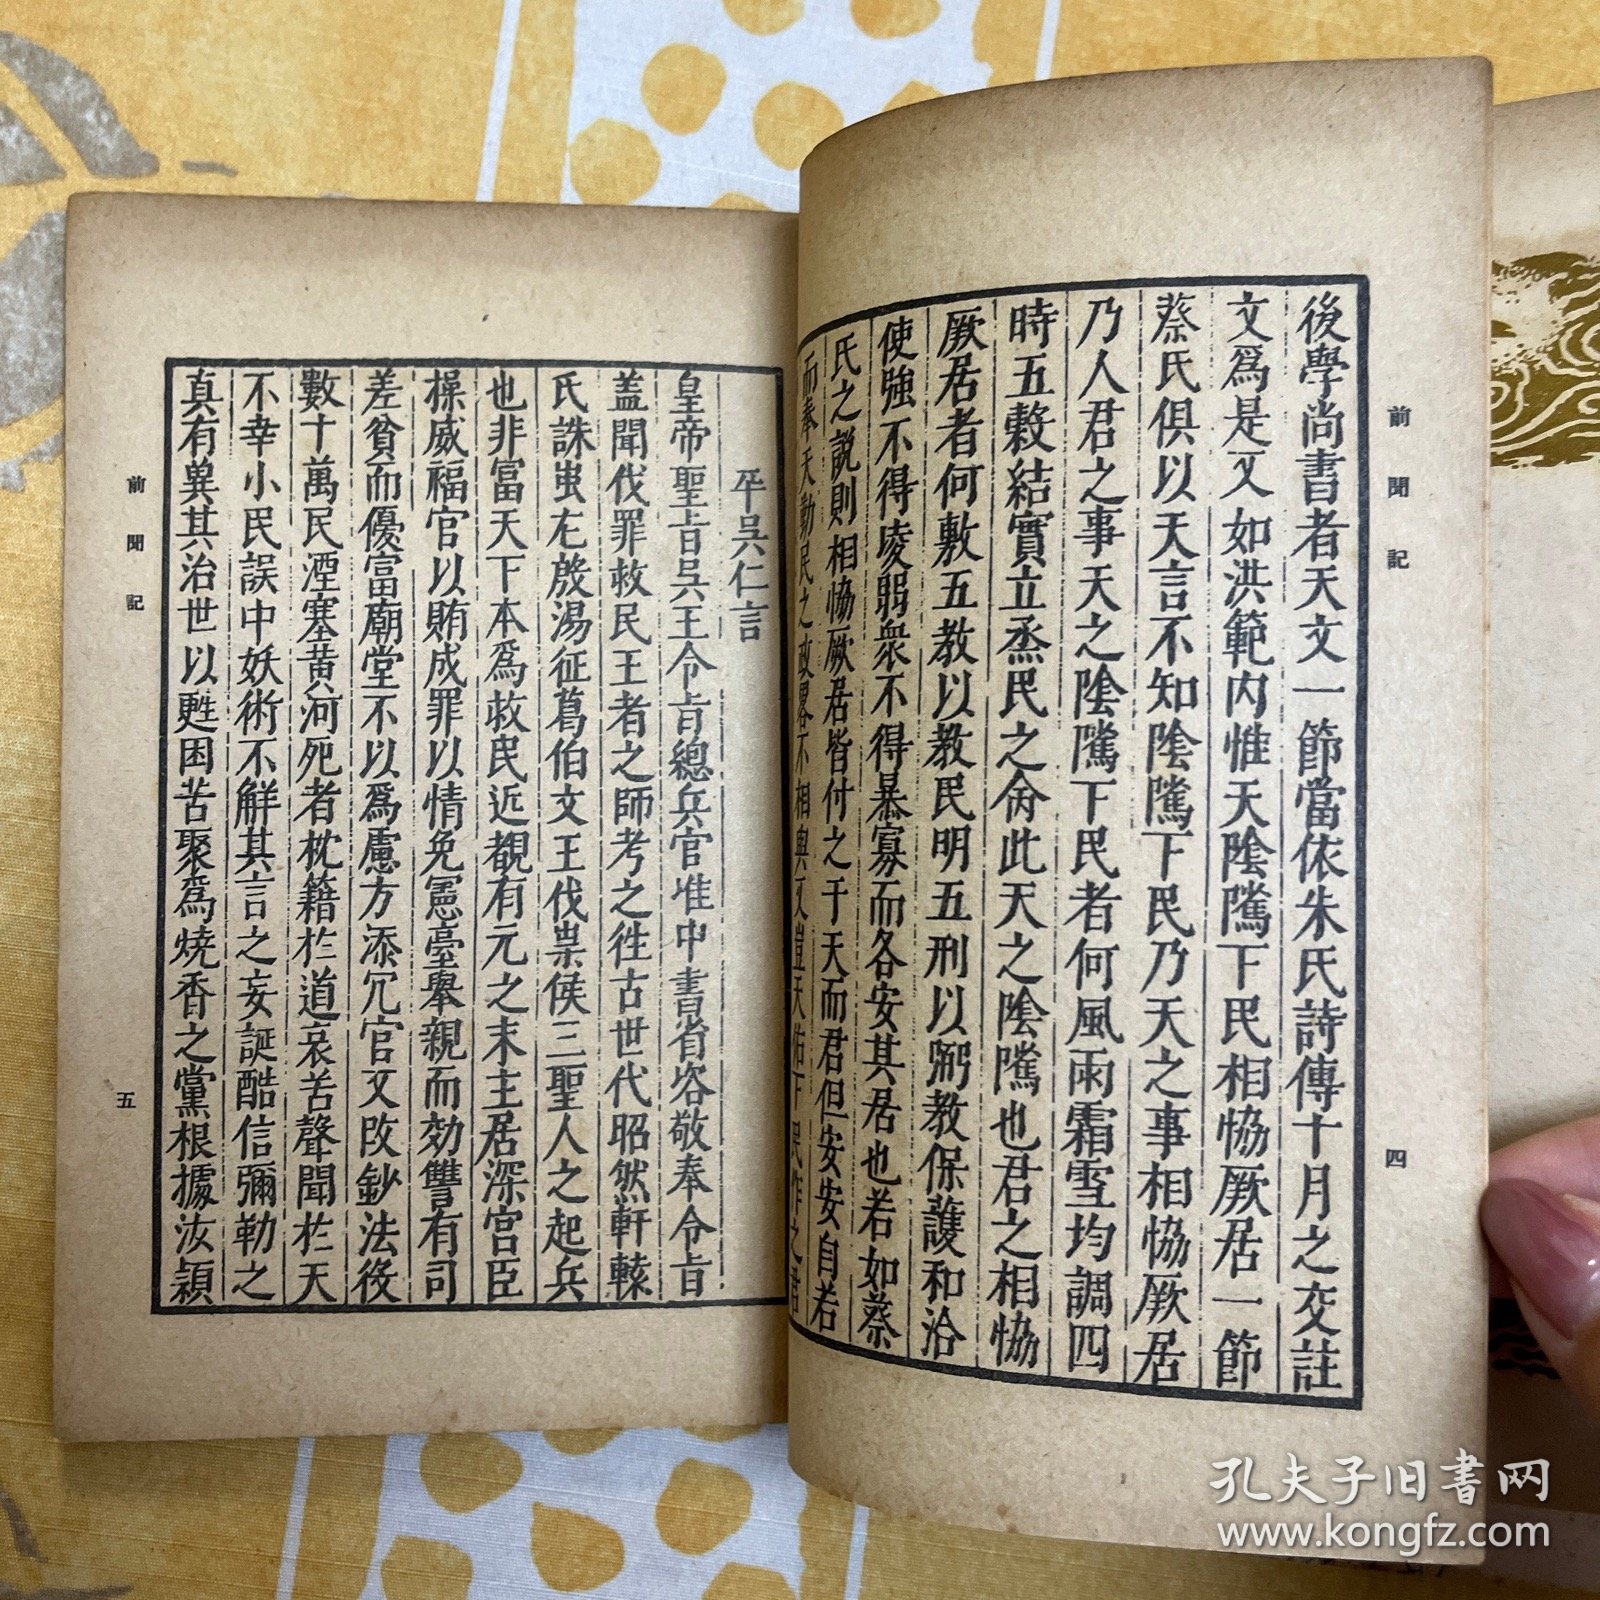 前聞記
四
後學尚書者天文一節當依朱氏詩傳十月之交註
文爲是又如洪範内惟天陰隲下民相恊厥居一節
蔡氏俱以天言不知陰隲下民乃天之事相恊厥居
乃人君之事天之陰隲下民者何風雨霜雪均調四
時五穀結實立烝民之命此天之陰隲也君之相恊
厥居者何敷五教以教民明五刑以弼教保護和洽
使強不得凌弱衆不得暴寡而各安其居也若如蔡
氏之説則相恊厥居皆付之于天而君但安安自若
而奉天勤民之政畧不相與又豈天佑下民作之君
平吳仁言
皇帝聖旨吳王令旨總兵官准中書省咨敬奉令旨
盖聞伐罪救民王者之師考之徃古世代昭然軒轅
氏誅蚩尤殷湯征葛伯文王伐崇侯三聖人之起兵
也非富天下本爲救民近覩有元之末主居深宮臣
操威福官以賄成罪以情免憲臺舉親而劾讐有司
差貧而優富廟堂不以爲慮方添冗官又改鈔法役
數十萬民湮塞黄河死者枕籍於道哀苦聲聞於天
不幸小民誤中妖術不解其言之妄誕酷信彌勒之
真有兾其治世以甦困苦聚爲燒香之黨根據汝潁
前聞記
五
孔夫子旧书网
www.kongfz.com